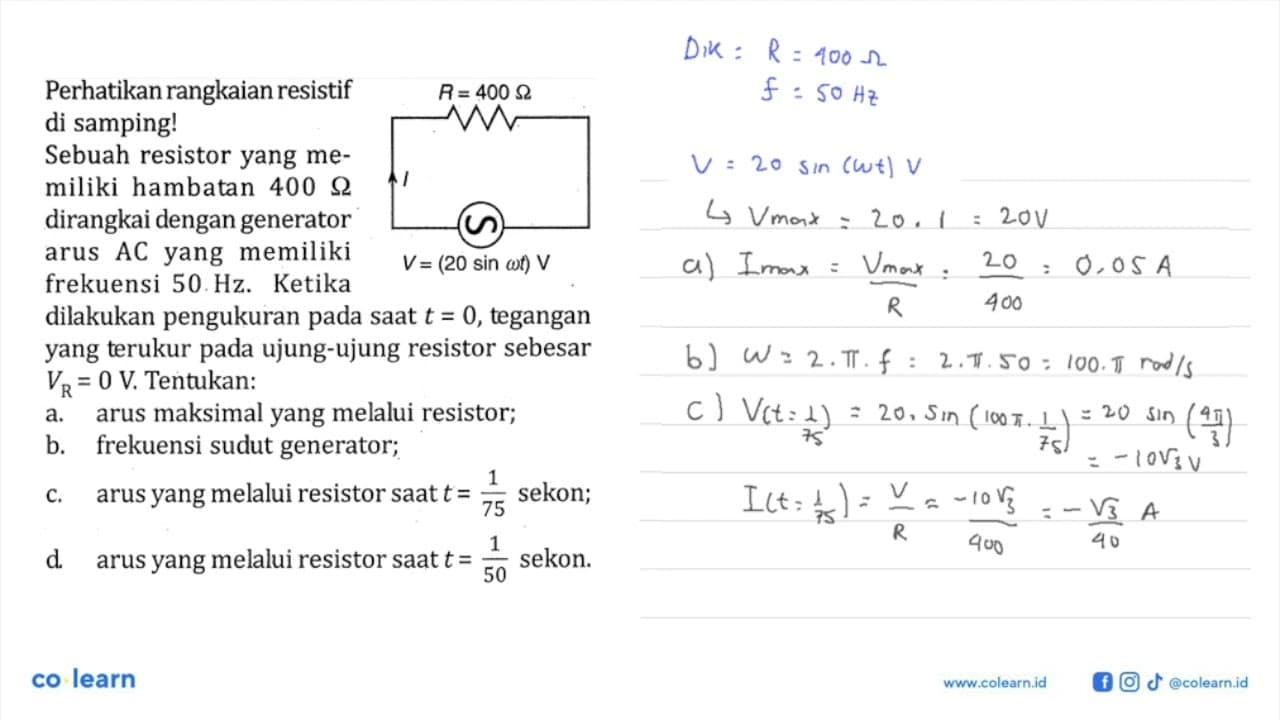 Perhatikan rangkaian resistif
di samping!
Sebuah resistor yang me-
miliki hambatan 400 Ω
dirangkai dengan generator
arus AC yang memiliki
frekuensi 50 Hz. Ketika
dilakukan pengukuran pada saat t = 0, tegangan
yang terukur pada ujung-ujung resistor sebesar
V_R = 0 V. Tentukan:
a. arus maksimal yang melalui resistor;
b. frekuensi sudut generator;
c. arus yang melalui resistor saat t = 1/75 sekon;
d. arus yang melalui resistor saat t = 1/50 sekon.
R = 400 Ω
I
V = (20 sin ωt) V
Dik : R = 400 Ω
f = 50 Hz
V = 20 sin (ωt) V
↳ Vmax = 20 . 1 = 20V
a) Imax = Vmax/R = 20/400 = 0,05 A
b) ω = 2.π.f = 2.π.50 = 100.π rad/s
c) V(t=1/75) = 20. sin (100π. 1/75) = 20 sin (4π/3)
= -10√3 V
I(t=1/75) = V/R = -10√3/400 = -√3/40 A
co learn
www.colearn.id
@colearn.id